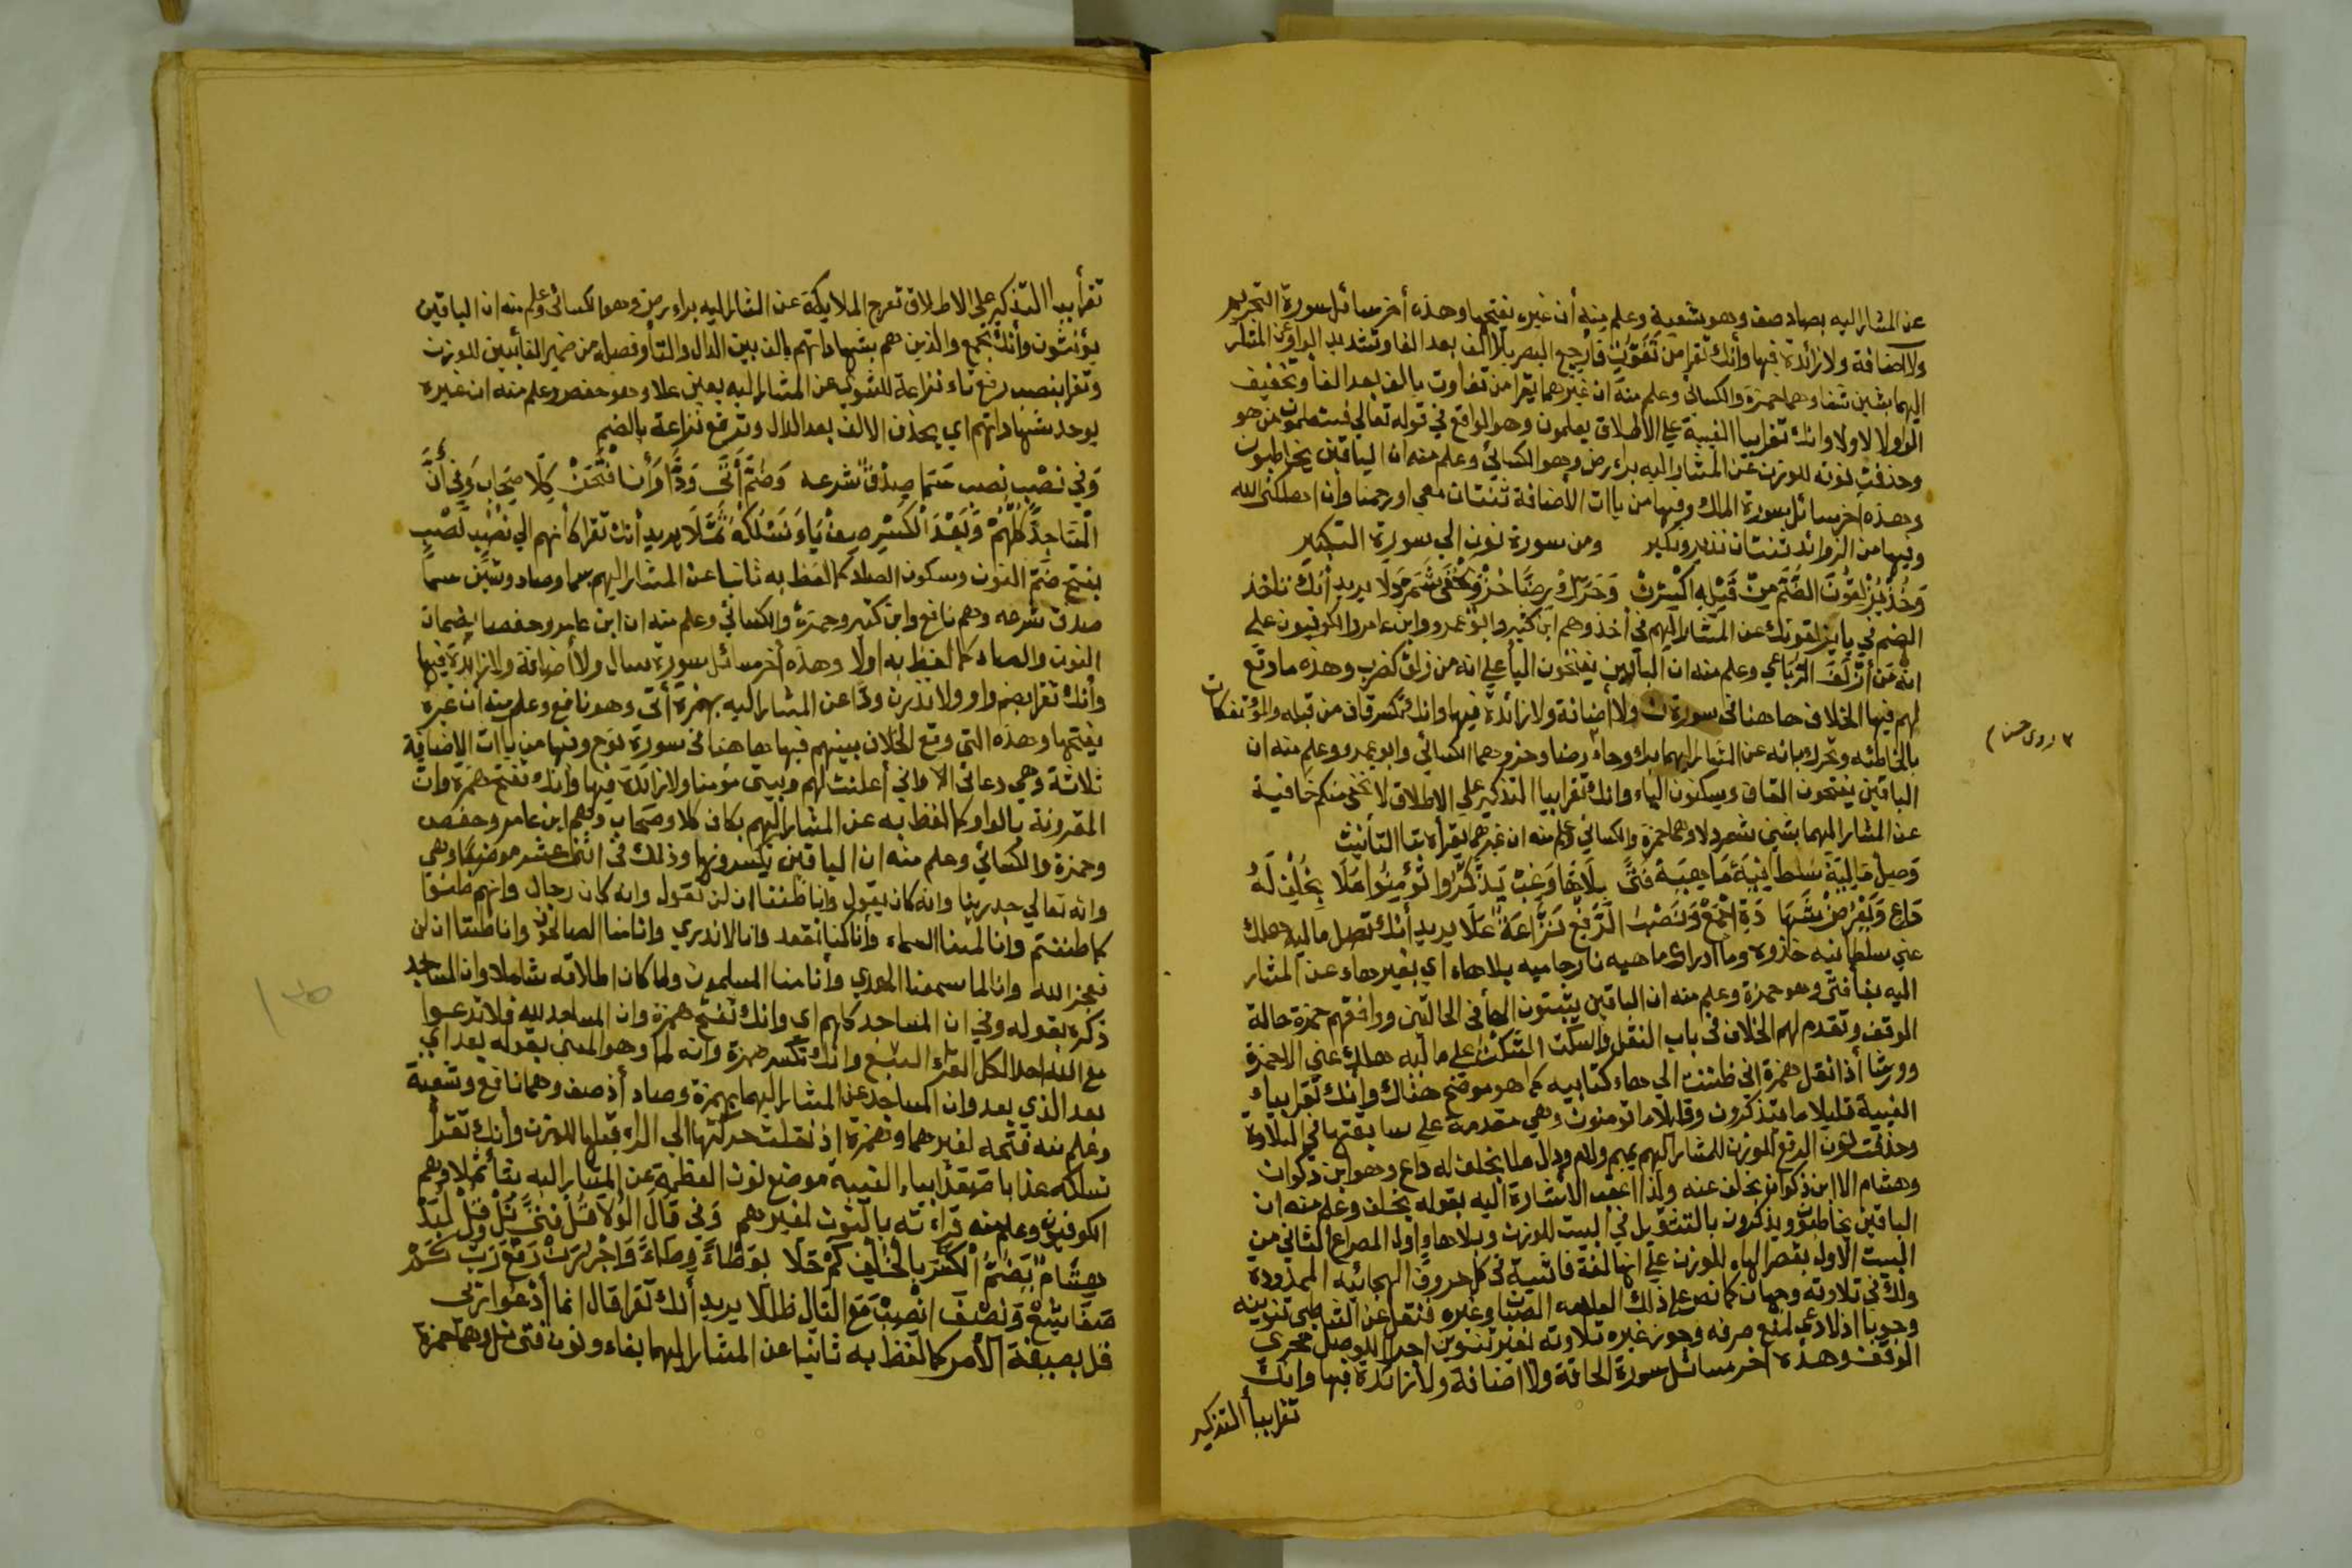 عن المشار اليه بصاد صف وهو شعبة وعلم منه أن غيره يفتحها وهذه أخر مسائل سورة التحريم
ولا اضافة ولا زائدة فيها وأنك تقرا من تفوت فارجع البصر بلا الف بعد الفا وتشديد الواو عن المشار
اليهما بشين شفا وهما حمزة والكسائي وعلم منه ان غيرهما يقرا من تفاوت بالف بعد الفا وتخفيف
الواو اولا وانك تقرا بيا الغيبة على الاطلاق يعلمون وهو الواقع في قوله تعالي فستعلمون من هو
وحذفت نونه للوزن عن المشار اليه براء رض وهو الكسائي وعلم منه ان الباقين يخاطبون
وهذه أخر مسائل سورة الملك وفيها من ياات الاضافة ثنتان معي او رحمنا وان اهلكني الله
وفيها من الزوائد ثنتان نذير ونكير ومن سورة نون الي سورة التكبير
وخذ يزلقون الضم من قبله اكسرن وحرك رضا حز ويخفى شمردلا يريد أنك تاخذ
الضم في يا يزلقونك عن المشار اليهم في أخذ وهم ابن كثير وابو عمرو وابن عامر والكوفيون على
انه من أزلق الرباعي وعلم منه ان الباقين يفتحون اليا على انه من زلق كضرب وهذه ما وقع
لهم فيها الخلاف هاهنا في سورة ن ولا اضافة ولا زائدة فيها وانك تكسر قاف من قبله والمؤتفكات
بالخاطئه وتحرك بائه عن المشار اليهما براء وحاء رضا وحز وهما الكسائي وابو عمرو وعلم منه ان
الباقين يفتحون القاف ويسكنون الباء وانك تقرا بيا التذكير على الاطلاق لا تخفى منكم خافية
عن المشار اليهما بشين شمردلا وهما حمزة والكسائي وعلم منه ان غيرهما يقراه بتا التانيث
وصل ماليه سلطانيه ما هيه فتى بلاها وغب يذكروا تؤمنوا ملا بخلف له
داع ويعرض شها دة اجمع ونصب الرفع نزاعة علا يريد أنك تصل ماليه هلك
عني سلطانيه خذوه وما ادراك ما هيه نار حاميه بلا هاء اي بغير هاء عن المشار
اليه بفا فتى وهو حمزة وعلم منه ان الباقين يثبتون الها في الحالتين ووافقهم حمزة حالة
الوقف وتقدم لهم الخلاف في باب النقل والسكت على ماليه هلك عني الا حمزة
وورشا أذا نقل همزة اني ظننت الي هاء كتابيه كما هو موضح هناك وانك تقرا بياء
الغيبة قليلا ما تذكرون وقليلا ما تومنون وهي متقدمة على سابقتها في التلاوة
وحذفت نون الرفع للوزن للمشار اليهم بميم ولام ودال ملا بخلف له داع وهو ابن ذكوان
وهشام الا ابن ذكوان بخلف عنه ولذا اعقب الاشارة اليه بقوله بخلف وعلم منه ان
الباقين يخاطبون ويذكرون بالتثقيل في البيت للوزن وبلا ها واول المصراع الثاني من
البيت الاول بقصر الهاء للوزن على انها لغة فاشية في كل حروف الهجائيه الممدودة
ولك في تلاوته وجهان كما نص على ذلك العلامه الصبان وغيره فنقل عن الشاطبي تنوينه
وجوبا اذ لا دعي لمنع صرفه وجوز غيره تلاوته بغير تنوين اجرا للوصل مجري
الوقف وهذه أخر مسائل سورة الحاقة ولا اضافة ولا زائدة فيها وانك
تقرا بيا التذكير
تقرا بيا التذكير على الاطلاق تعرج الملايكة عن المشار اليه براء رض وهو الكسائي وعلم منه ان الباقين
يؤنثون وأنك تجمع والذين هم بشهاداتهم بالف بين الدال والتا وفصله من ضمير الغائبين للوزن
وتقرا بنصب رفع تاء نزاعة للشوي عن المشار اليه بعين علا وهو حفص وعلم منه ان غيره
يوحد بشهاداتهم اي يحذف الالف بعد الدال وترفع نزاعة بالضم
وفي نصب نصب عم صدق شرعه وضم أتى ودا وأنا فتحن كلا صحاب وفي أن
المساجد كلهم وبعد الكسر صف يا ونسلكه ثملا يريد أنك تقرا كأنهم الي نصب نصب
بفتح ضم النون وسكون الصاد كما لفظ به ثانيا عن المشار اليهم بسما وصاد وشين سما
صدق شرعه وهم نافع وابن كثير وحمزة والكسائي وعلم منه ان ابن عامر وحفصا يضمان
النون والصاد كما لفظ به اولا وهذه أخر مسائل سورة سال ولا اضافة ولا زائدة فيها
وأنك تقرا بضم واو ولا تذرن ودا عن المشار اليه بهمزة أتى وهو نافع وعلم منه ان غيره
يفتحها وهذه التي وقع الخلاف بينهم فيها هاهنا في سورة نوح وفيها من ياات الاضافة
ثلاثة وهي دعائي الا واني أعلنت لهم وبيتي مؤمنا ولا زائدة فيها وانك تفتح همزة وان
المقرونة بالواو كما لفظ به عن المشار اليهم بكاف كلا وصحاب وهم ابن عامر وحفص
وحمزة والكسائي وعلم منه ان الباقين يكسرونها وذلك في اثنى عشر موضعا وهي
وانه تعالي جد ربنا وانه كان يقول وانا ظننا ان لن تقول وانه كان رجال وانهم ظنوا
كما ظننتم وانا لمسنا السماء وأنا كنا نقعد وانا لا ندري وانا منا الصالحون وانا ظننا ان لن
نعجز الله وانا لما سمعنا الهدي وأنا منا المسلمون ولما كان اطلاقه شاملا وان المساجد
ذكره بقوله وفي ان المساجد كلهم اي وانك تفتح همزة وان المساجد لله فلا تدعوا
مع الله احدا لكل القراء السبع وانك تكسر همزة وانه لما وهو المعني بقوله بعد اي
بعد الذي بعد وان المساجد عن المشار اليهما بهمزة وصاد أذ صف وهما نافع وشعبة
وعلم منه فتحه لغيرهما وهمزة إذ نقلت حركتها الي الراء قبلها للوزن وأنك تقرأ
نسلكه عذابا صعدا بياء الغيبة موضع نون العظمة عن المشار اليه بثا ثملا وهم
الكوفيون وعلم منه قراءته بالنون لغيرهم وفي قال الولا قل فتى نل وقل لبد
هشام بضم الكسر بالخلف كم حلا بوطاء وطاء واجررن رفع رب كم
صفا شع ونصف انصب مع التال ظللا يريد أنك تقرا قال انما أدعوا ربي
قل بصيغة الأمر كما لفظ به ثانيا عن المشار اليهما بفاء ونون فتى نل وهما حمزة